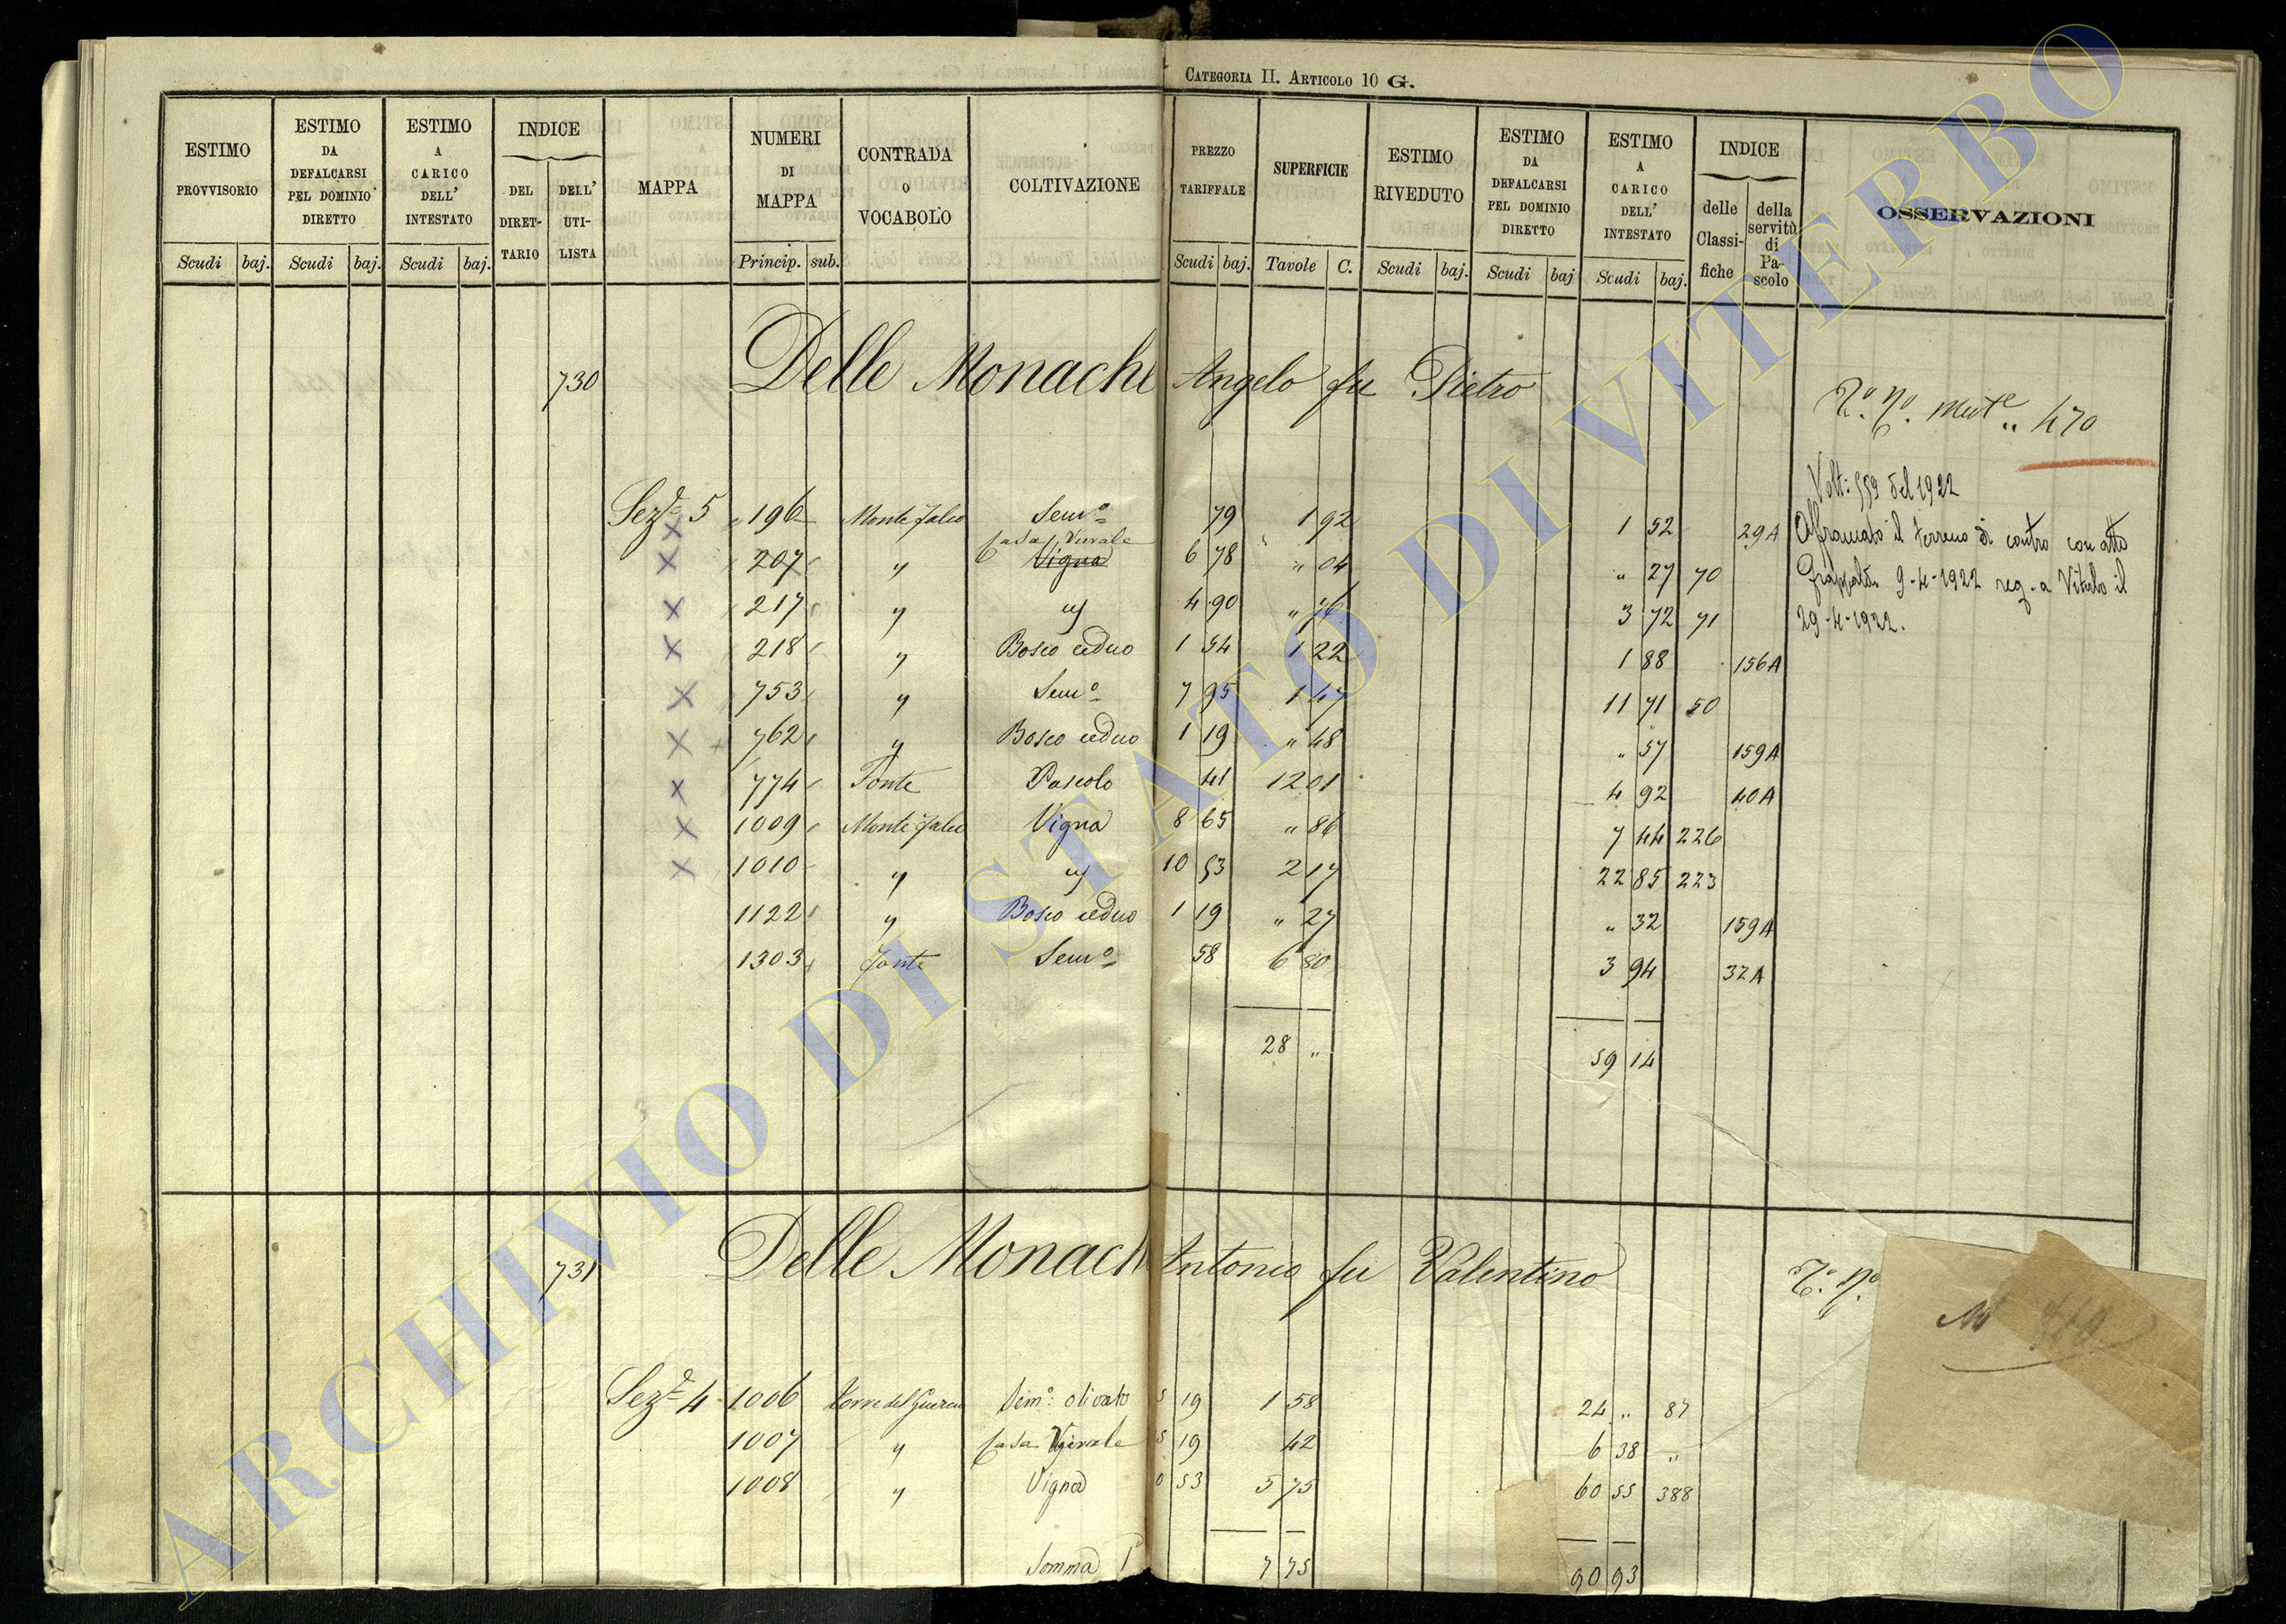 CATEGORIA II. ARTICOLO 10 G.
ESTIMO PROVVISORIO Scudi baj. ESTIMO DA DEFALCARSI PEL DOMINIO DIRETTO Scudi baj. ESTIMO A CARICO DELL' INTESTATO Scudi baj. INDICE DEL DIRET-TARIO DELL' UTI-LISTA MAPPA NUMERI DI MAPPA Princip. sub. CONTRADA O VOCABOLO COLTIVAZIONE PREZZO TARIFFALE Scudi baj. SUPERFICIE Tavole C. ESTIMO RIVEDUTO Scudi baj. ESTIMO DA DEFALCARSI PEL DOMINIO DIRETTO Scudi baj ESTIMO A CARICO DELL' INTESTATO Scudi baj. INDICE delle Classi-fiche della servitù di Pa-scolo OSSERVAZIONI
730 Delle Monache Angelo fu Pietro
470
Volt: 559 del 1922
Sez.e 5 196 Monte Falco Sem.o 79 1 92 1 52 29A Affrancato il terreno di contro con atto
Casa Rurale
207 " Vigna 6 78 " 04 " 27 70 9-4-1922 reg. a Viterbo il
217 " " 4 90 " 76 3 72 71 29-4-1922.
218 " Bosco ceduo 1 54 1 22 1 88 156A
753 " Sem.o 7 95 1 47 11 71 50
762 " Bosco ceduo 1 19 " 48 " 57 159A
774 Fonte Pascolo 41 12 01 4 92 40A
1009 Monte Falco Vigna 8 65 " 86 7 44 226
1010 " " 10 53 2 17 22 85 223
1122 " Bosco ceduo 1 19 " 27 " 32 159A
1303 Fonte Sem.o 58 6 80 3 94 32A
28 " 59 14
731 Delle Monach Antonio fu Valentino
Sez.e 4 1006 Torre del Sem.o olivato 5 19 1 58 24 " 87
1007 " Casa 5 19 42 6 38 "
1008 " Vigna 0 53 5 75 60 55 388
Somma 7 75 90 93
ARCHIVIO DI STATO DI VITERBO